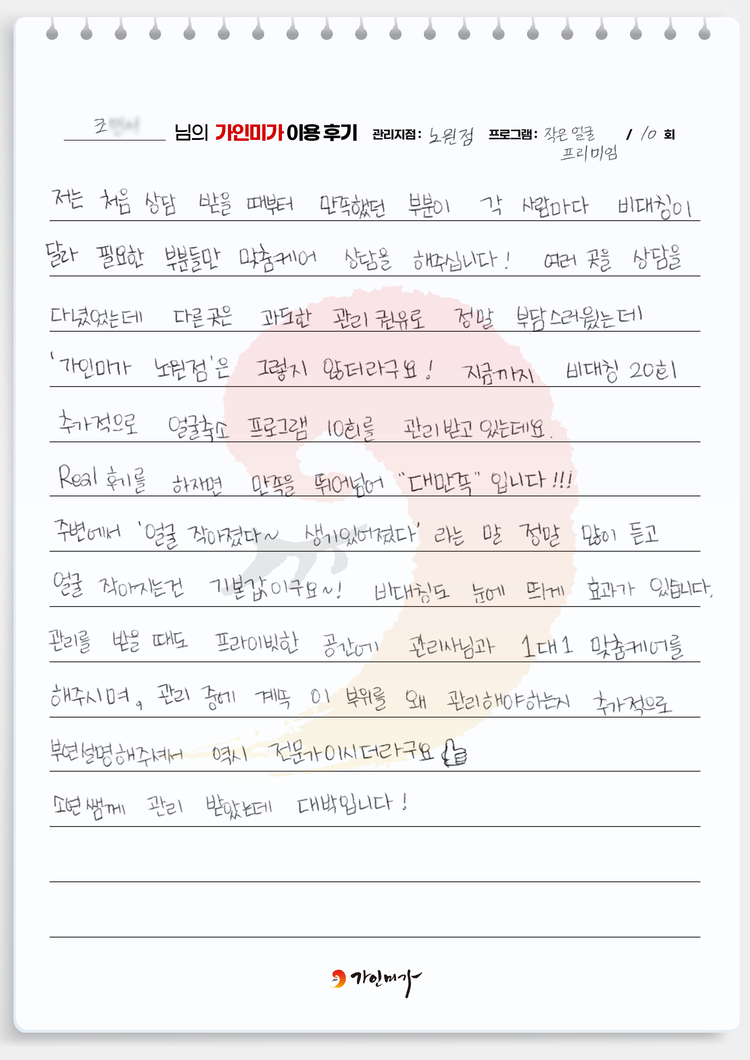 조
님의 가인미가 이용 후기 관리지점 : 노원점 프로그램 : 작은 얼굴 프리미엄 / 10 회
저는 처음 상담 받을 때부터 만족했던 부분이 각 사람마다 비대칭이
달라 필요한 부분들만 맞춤케어 상담을 해주십니다! 여러 곳을 상담을
다녔었는데 다른곳은 과도한 관리 권유로 정말 부담스러웠는데
'가인미가 노원점'은 그렇지 않더라구요! 지금까지 비대칭 20회
추가적으로 얼굴축소 프로그램 10회를 관리받고 있는데요.
Real 후기를 하자면 만족을 뛰어넘어 "대만족" 입니다!!!
주변에서 '얼굴 작아졌다~ 생기있어졌다' 라는 말 정말 많이 듣고
얼굴 작아지는건 기본값이구요~! 비대칭도 눈에 띄게 효과가 있습니다.
관리를 받을 때도 프라이빗한 공간에 관리사님과 1대1 맞춤케어를
해주시며, 관리 중에 계속 이 부위를 왜 관리해야하는지 추가적으로
부연설명해주셔서 역시 전문가이시더라구요
소연쌤께 관리 받았는데 대박입니다!
가인미가